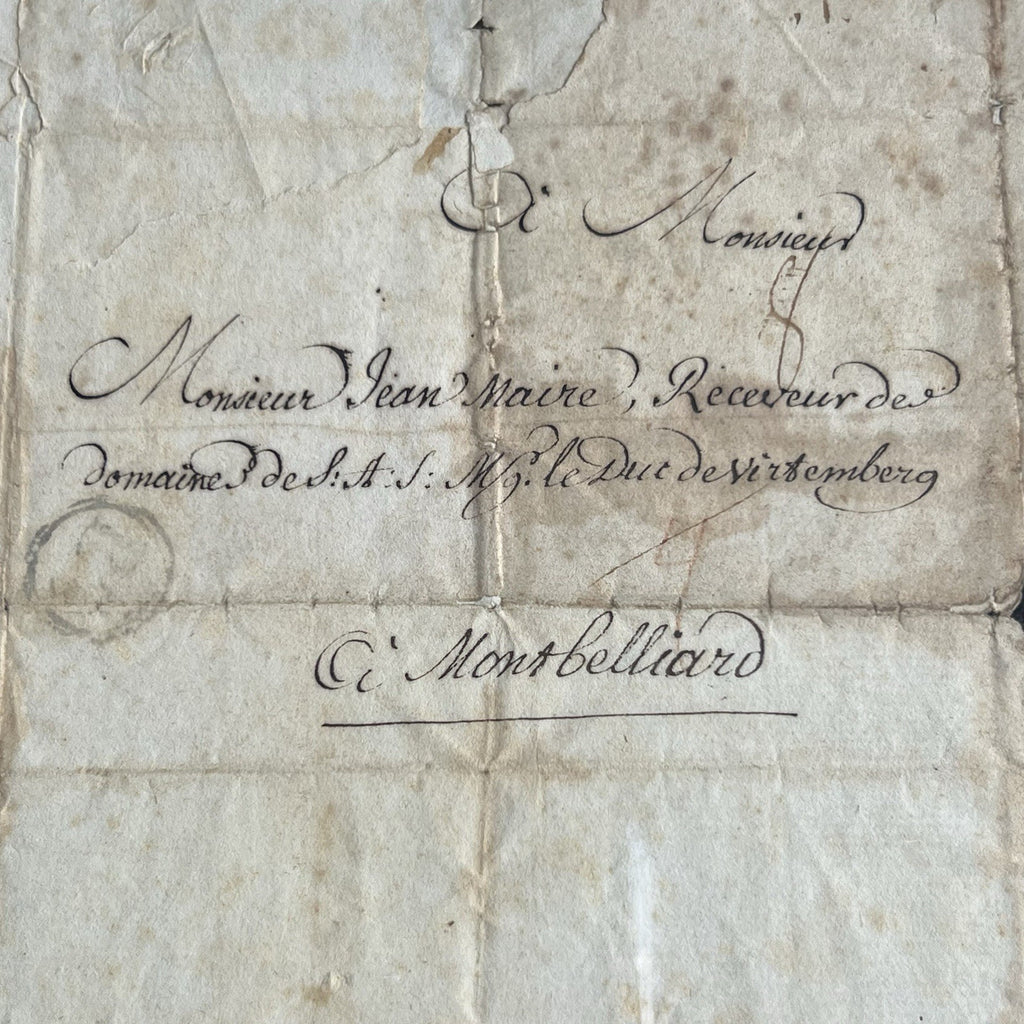 À Monsieur
Monsieur Jéan Maire, Réceveur des
domaines de S: A: S: Mgr. le Duc de Virtemberg
à Montbelliard